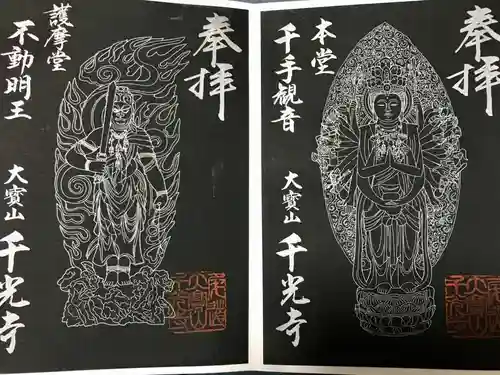 奉拝
本堂
千手観音
大寳山
千光寺
奉拝
護摩堂
不動明王
大寳山
千光寺